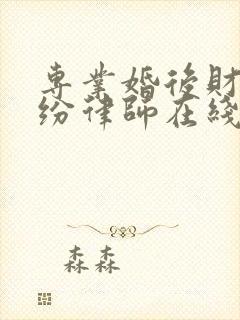 專業婚後財
紛律師在綫
森森